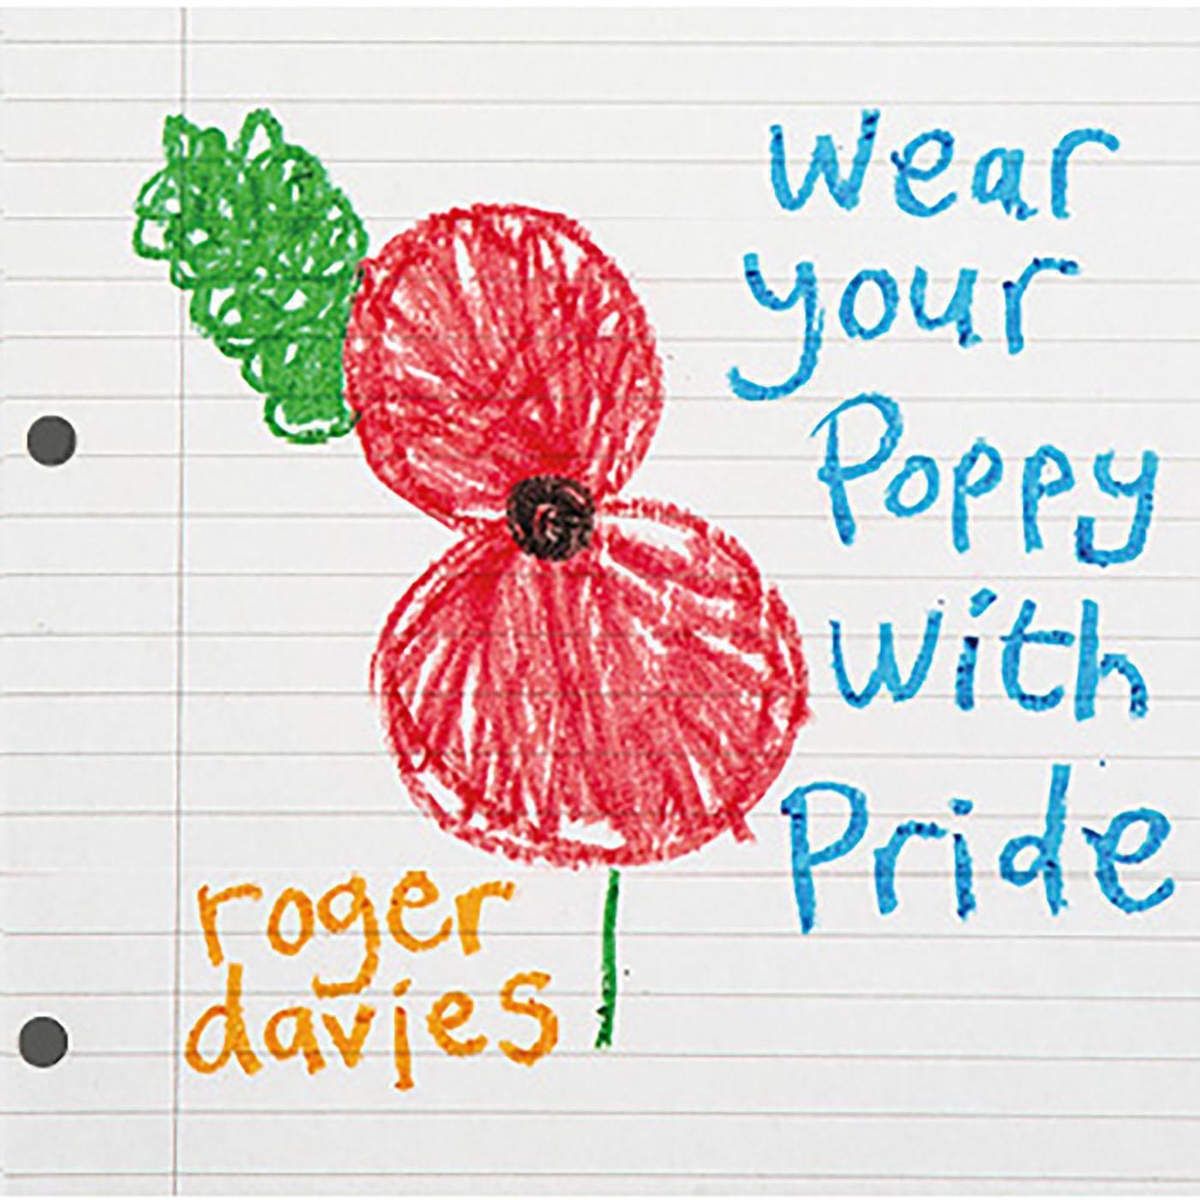 Wear
your
Poppy
with
Pride
roger
davies